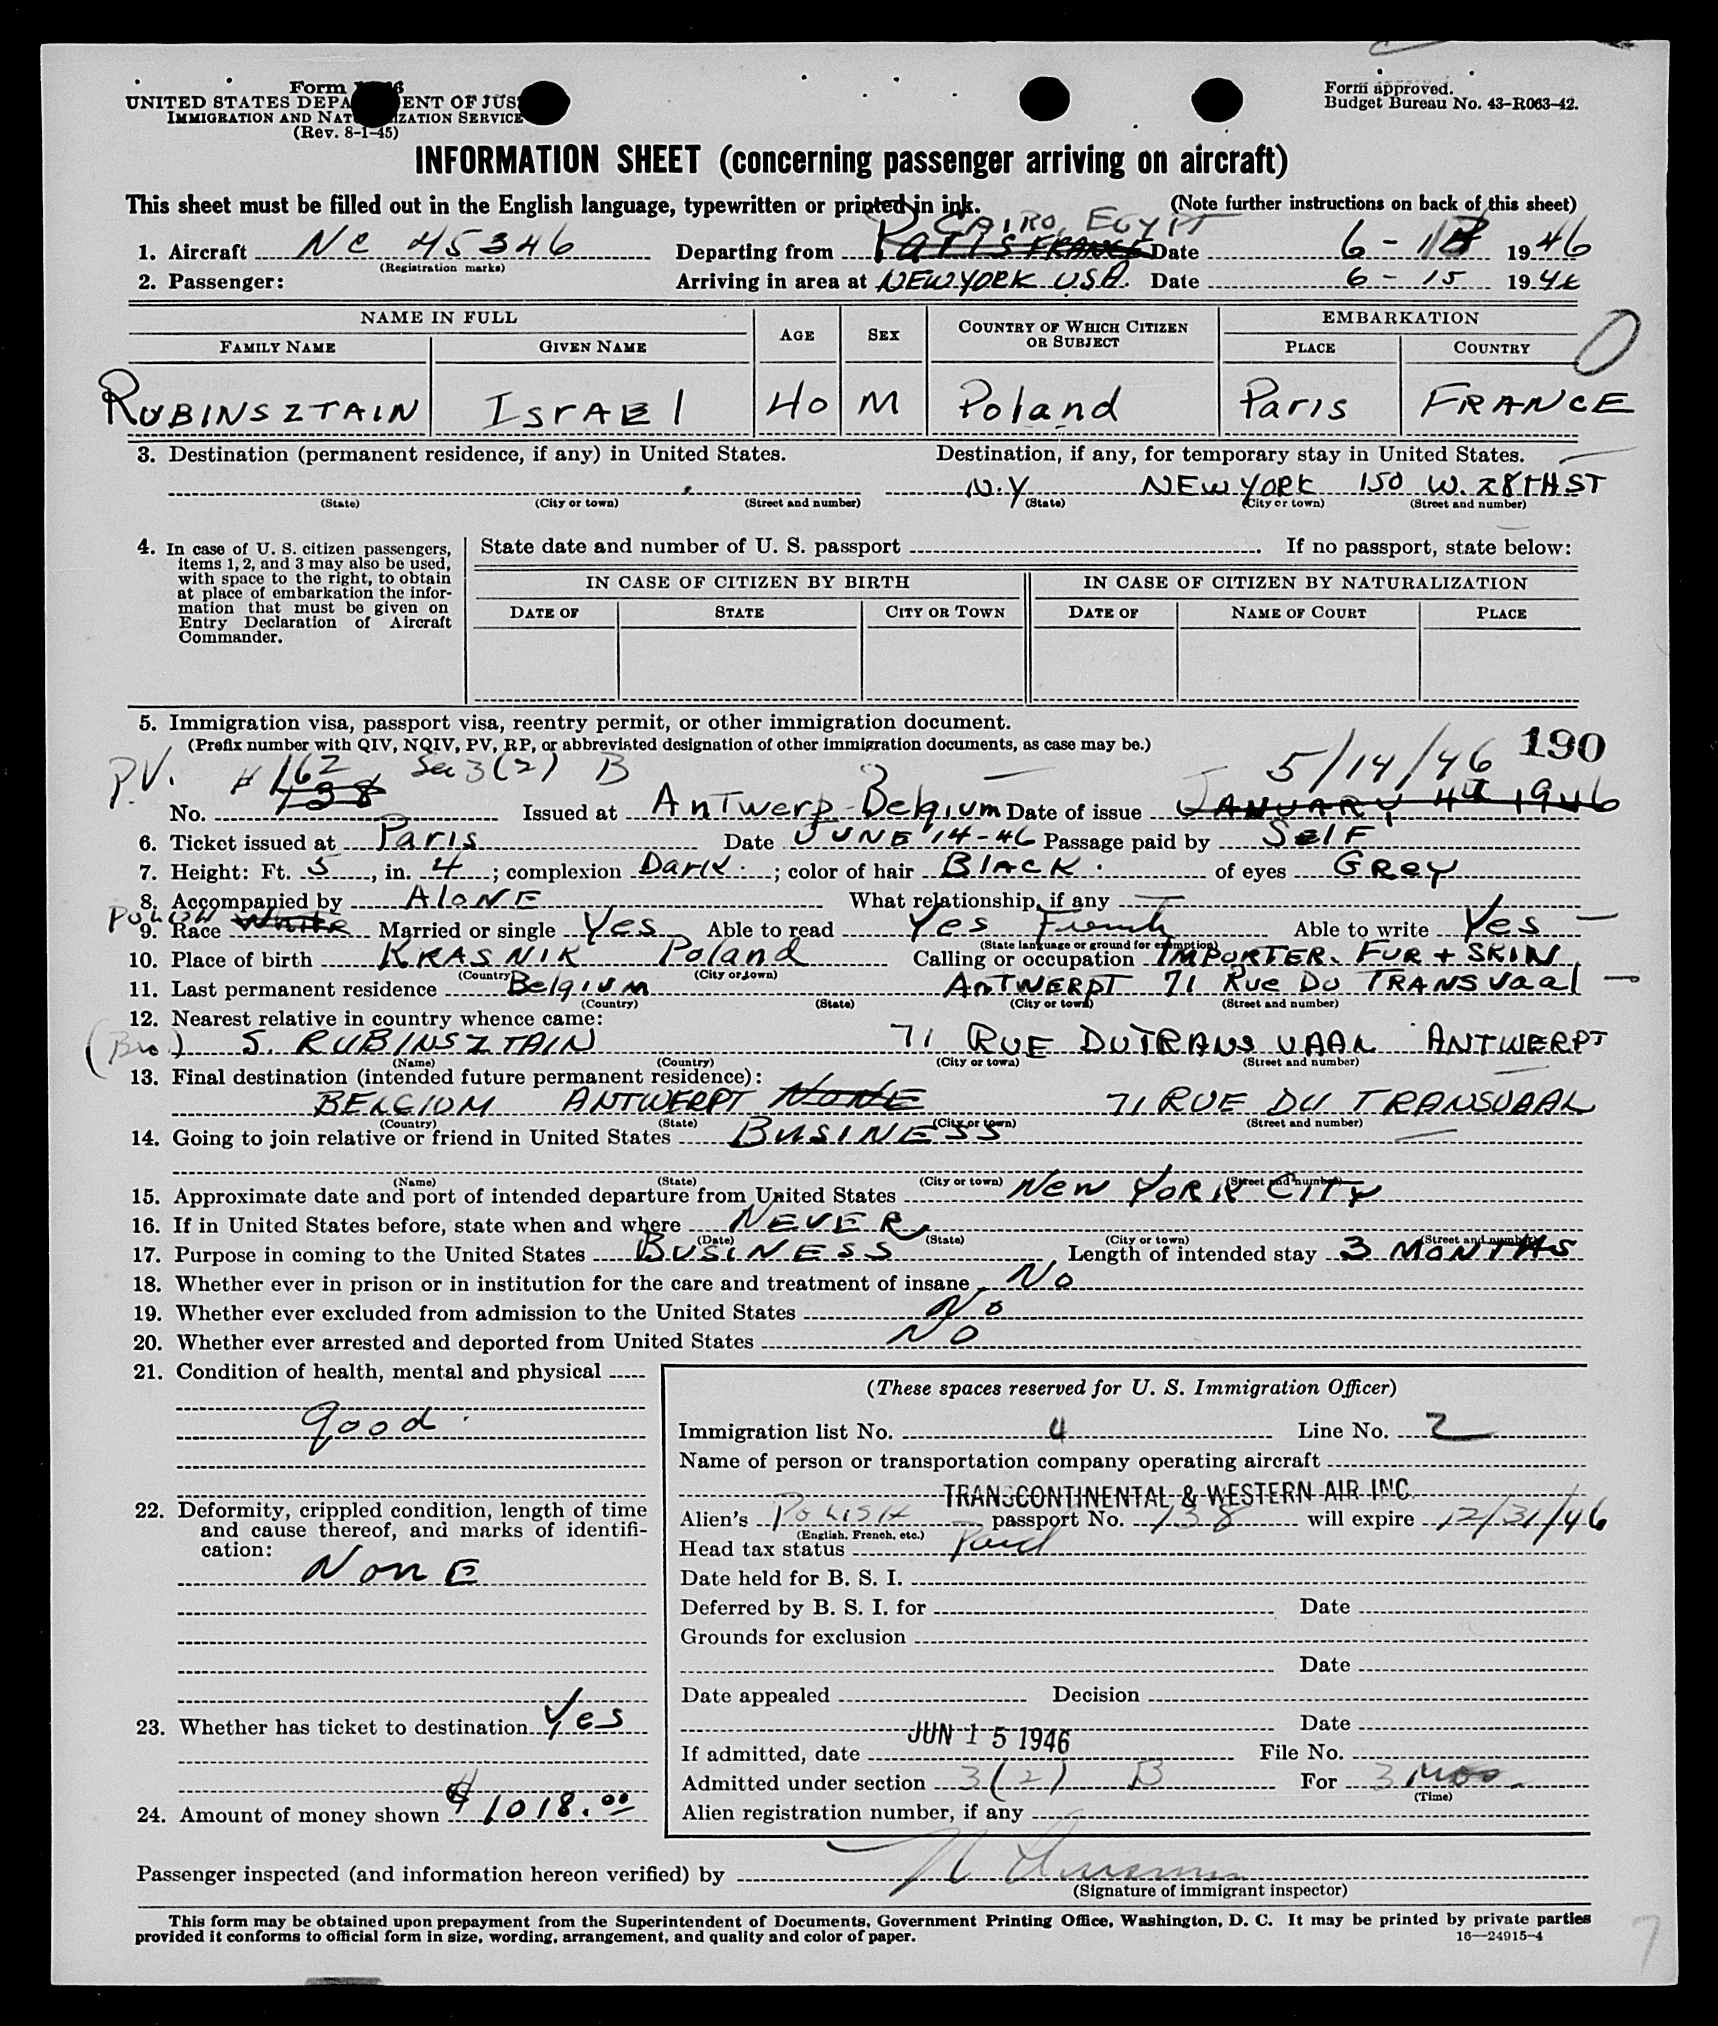 Form I-466
UNITED STATES DEPARTMENT OF JUSTICE
IMMIGRATION AND NATURALIZATION SERVICE
(Rev. 8-1-45)
Form approved.
Budget Bureau No. 43-R063-42.
INFORMATION SHEET (concerning passenger arriving on aircraft)
This sheet must be filled out in the English language, typewritten or printed in ink. (Note further instructions on back of this sheet)
CAIRO, EGYPT
1. Aircraft NC 45346 Departing from Paris FRANCE Date 6 - 1 1946
(Registration marks)
2. Passenger: Arriving in area at NEW YORK USA. Date 6 - 15 1946
NAME IN FULL AGE SEX COUNTRY OF WHICH CITIZEN OR SUBJECT EMBARKATION
FAMILY NAME GIVEN NAME PLACE COUNTRY
RUBINSZTAIN ISrAEl 40 M Poland Paris FRANCE
3. Destination (permanent residence, if any) in United States. Destination, if any, for temporary stay in United States.
N.Y NEW YORK 150 W. 28TH ST
(State) (City or town) (Street and number) (State) (City or town) (Street and number)
4. In case of U. S. citizen passengers, items 1, 2, and 3 may also be used, with space to the right, to obtain at place of embarkation the information that must be given on Entry Declaration of Aircraft Commander.
State date and number of U. S. passport If no passport, state below:
IN CASE OF CITIZEN BY BIRTH IN CASE OF CITIZEN BY NATURALIZATION
DATE OF STATE CITY OR TOWN DATE OF NAME OF COURT PLACE
5. Immigration visa, passport visa, reentry permit, or other immigration document.
(Prefix number with QIV, NQIV, PV, RP, or abbreviated designation of other immigration documents, as case may be.)
190
P.V. # 162 Sec 3(2) B 5/14/46
No. 138 Issued at Antwerp-Belgium Date of issue JANUARY 4th 1946
6. Ticket issued at Paris Date JUNE 14-46 Passage paid by SElF
7. Height: Ft. 5, in. 4; complexion Dark.; color of hair BlACK. of eyes GRey
8. Accompanied by AloNE What relationship, if any
POLISH
9. Race White Married or single Yes Able to read Yes French Able to write Yes
(State language or ground for exemption)
10. Place of birth KRASNIK Poland Calling or occupation IMPORTER. FUR + SKIN
(Country) (City or town)
11. Last permanent residence Belgium ANTWERPT 71 Rue Du TRANSvaal
(Country) (State) (City or town) (Street and number)
12. Nearest relative in country whence came:
(Bro) S. RUBINSZTAIN 71 RUE DU TRANSVAAL ANTWERPT
(Name) (Country) (City or town) (Street and number)
13. Final destination (intended future permanent residence):
BELGIUM ANTWERPT NONE 71 RUE DU TRANSVAAL
(Country) (State) (City or town) (Street and number)
14. Going to join relative or friend in United States BUSINESS
(Name) (State) (City or town) (Street and number)
15. Approximate date and port of intended departure from United States NEW YORK CITY
16. If in United States before, state when and where NEVER
(Date) (State) (City or town) (Street and number)
17. Purpose in coming to the United States BUSINESS Length of intended stay 3 MONTHS
18. Whether ever in prison or in institution for the care and treatment of insane No
19. Whether ever excluded from admission to the United States No
20. Whether ever arrested and deported from United States NO
21. Condition of health, mental and physical
good.
22. Deformity, crippled condition, length of time
and cause thereof, and marks of identification:
NonE
23. Whether has ticket to destination Yes
24. Amount of money shown $1018.00
(These spaces reserved for U. S. Immigration Officer)
Immigration list No. 4 Line No. 2
Name of person or transportation company operating aircraft
TRANSCONTINENTAL & WESTERN AIR INC.
Alien's POLISH passport No. 138 will expire 12/31/46
(English, French, etc.)
Head tax status Paid
Date held for B. S. I.
Deferred by B. S. I. for Date
Grounds for exclusion
Date
Date appealed Decision
Date
JUN 15 1946
If admitted, date File No.
Admitted under section 3(2) B For 3 Mos.
(Time)
Alien registration number, if any
Passenger inspected (and information hereon verified) by
(Signature of immigrant inspector)
This form may be obtained upon prepayment from the Superintendent of Documents, Government Printing Office, Washington, D. C. It may be printed by private parties
provided it conforms to official form in size, wording, arrangement, and quality and color of paper.
16—24915-4